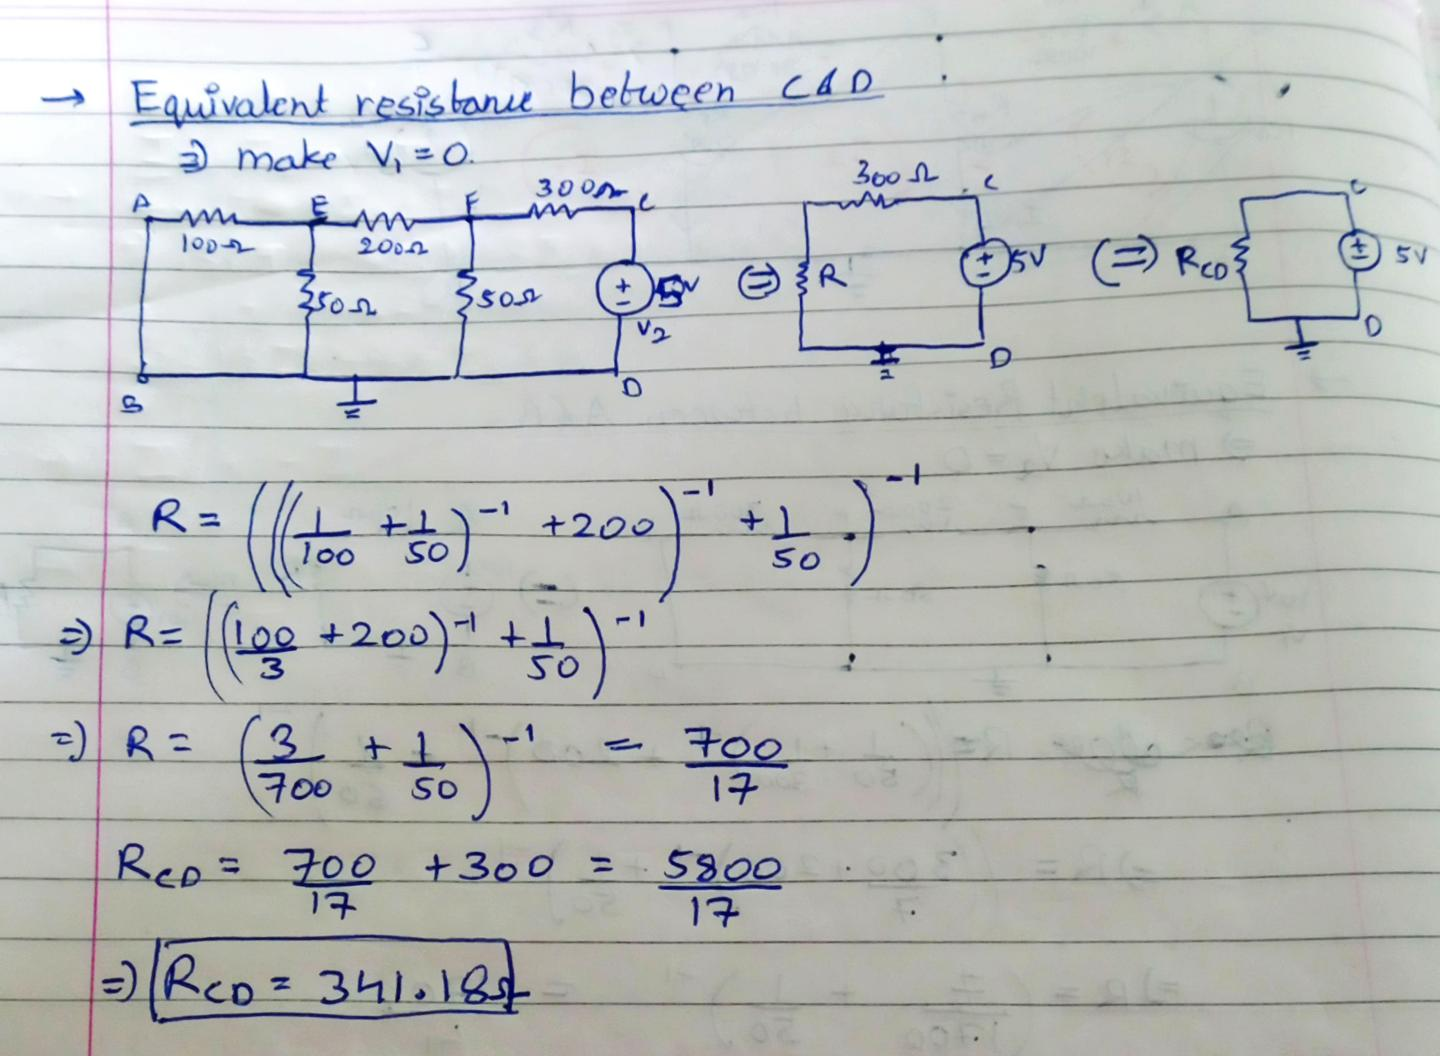 → Equivalent resistance between C & D
⇒ make V₁ = 0.
A E F 300Ω C 300Ω C C
100Ω 200Ω
50Ω 50Ω 5V ⇔ R 5V ⇔ R_CD 5V
V₂
B D D D
R = (((1/100 + 1/50)^-1 + 200)^-1 + 1/50)^-1
⇒ R = ((100/3 + 200)^-1 + 1/50)^-1
⇒ R = (3/700 + 1/50)^-1 = 700/17
R_CD = 700/17 + 300 = 5800/17
⇒ R_CD = 341.18Ω